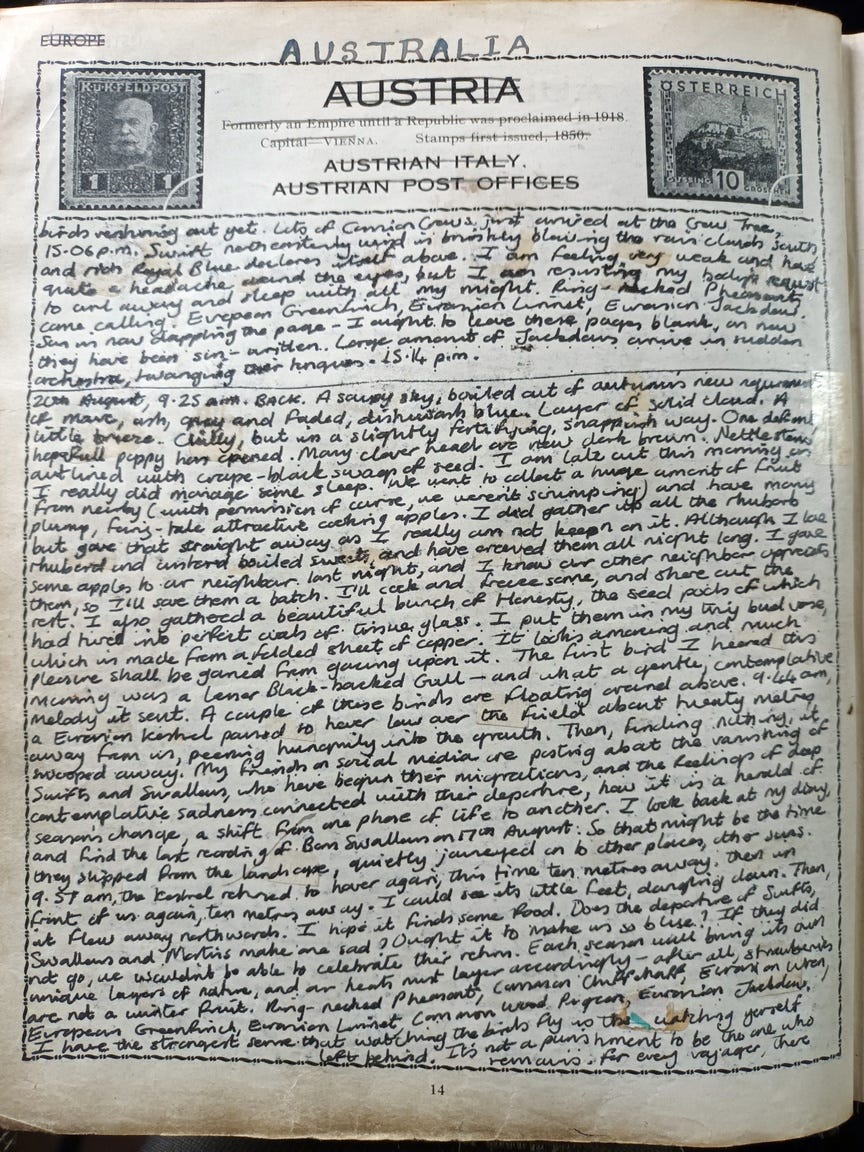 EUROPE
AUSTRALIA
AUSTRIA
K.u.K. FELDPOST
1 1
ÖSTERREICH
10
GROSCHEN
Formerly an Empire until a Republic was proclaimed in 1918.
Capital—VIENNA. Stamps first issued, 1850.
AUSTRIAN ITALY.
AUSTRIAN POST OFFICES
birds venturing out yet. Lots of Carrion Crows just arrived at the Crow Tree,
15.06 p.m. Swift northeasterly wind is briskly blowing the rain clouds south
and rich Royal Blue declares itself above. I am feeling very weak and have
quite a headache around the eyes, but I am resisting my body's request
to curl away and sleep with all my might. Ring-necked Pheasants
came calling. European Greenfinch, Eurasian Linnet, Eurasian Jackdaw.
Sun is now dappling the page - I ought to leave these pages blank, as now
they have been sun-written. Large amount of Jackdaws arrive in sudden
orchestra, twanging their tongues. 15.14 p.m.
20th August, 9.25 a.m. BACK. A soupy sky, boiled out of autumn's new requirements
of mauve, ash, grey and faded, dishwash blue. Layer of solid cloud. A
little breeze. Chilly, but in a slightly fortifying, snappish way. One defiant
hopefull poppy has opened. Many clover head are now dark brown. Nettle stems
outlined with crape-black swags of seed. I am late out this morning as
I really did manage some sleep. We went to collect a huge amount of fruit
from nearby (with permission of curse, we weren't scrumping) and have many
plump, fairy-tale attractive cooking apples. I did gather up all the rhubarb
but gave that straight away as I really am not keen on it. Although I love
rhubarb and custard boiled sweets, and have craved them all night long. I gave
some apples to our neighbour last night, and I know our other neighbor appreciates
them, so I'll save them a batch. I'll cook and freeze some, and share out the
rest. I also gathered a beautiful bunch of Honesty, the seed pods of which
had turned into perfect ovals of tissue glass. I put them in my tiny bud vase,
which is made from a folded sheet of copper. It looks amazing and much
pleasure shall be gained from gazing upon it. The first bird I heared this
morning was a Lesser Black-backed Gull - and what a gentle, contemplative
melody it sent. A couple of these birds are floating around above. 9.44 am,
a Eurasian Kestrel paused to hover low over the field about twenty metres
away from us, peering hungrily into the growth. Then, finding nothing, it
swooped away. My friends on social media are posting about the vanishing of
Swifts and Swallows, who have begun their migrations, and the feelings of deep
contemplative sadness connected with their departure, how it is a herald of
season's change, a shift from one phase of life to another. I look back at my diary,
and find the last recording of Barn Swallows on 17th August. So that might be the time
they slipped from the landscape, quietly journeyed on to other places, other suns.
9.57 am, the Kestrel returned to hover again, this time ten metres away, then in
front of us again, ten metres away. I could see its little feet, dangling down. Then,
it flew away northwards. I hope it finds some food. Does the departure of Swifts,
Swallows and Martins make me sad? Ought it to make us so blue? If they did
not go, we wouldn't be able to celebrate their return. Each season will bring its own
unique layers of nature, and our hearts must layer accordingly - after all, strawberries
are not a winter fruit. Ring-necked Pheasant, Common Chiffchaff, Eurasian Wren,
European Greenfinch, Eurasian Linnet, Common Wood Pigeon, Eurasian Jackdaw,
I have the strongest sense that watching the birds fly is watching yourself
left behind. It's not a punishment to be the one who
remains. For every voyager, there
14